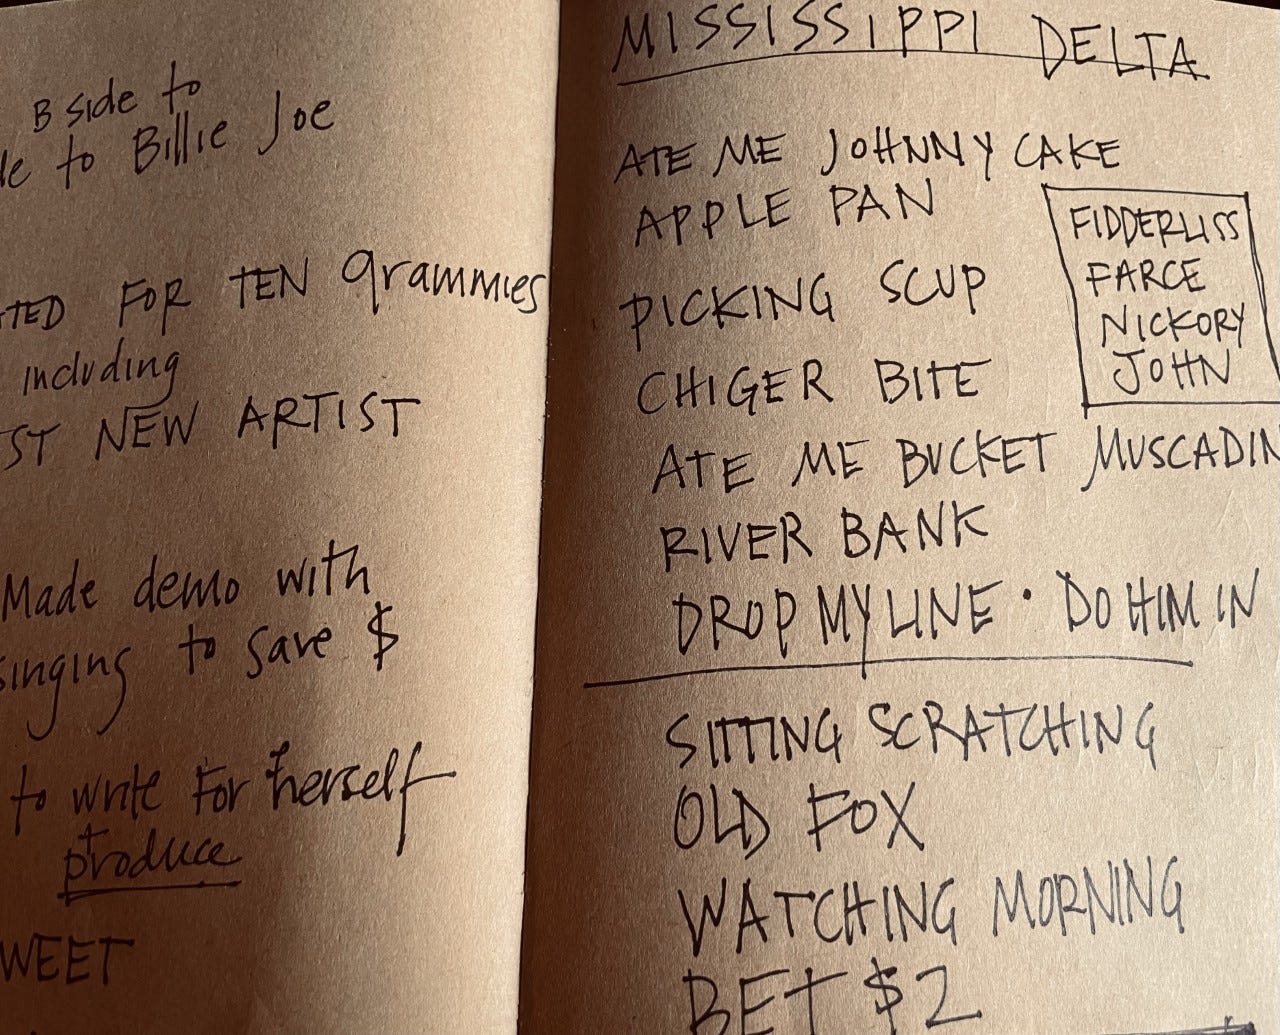 B side to
to Billie Joe
FOR TEN grammies
including
NEW ARTIST
Made demo with
singing to save $
to write for herself
+
produce
WEET
MISSISSIPPI DELTA
ATE ME JOHNNY CAKE
APPLE PAN
PICKING SCUP
CHIGER BITE
ATE ME BUCKET MUSCADIN
RIVER BANK
DROP MY LINE • DO HIM IN
FIDDERLISS
FARCE
NICKORY
JOHN
SITTING SCRATCHING
OLD FOX
WATCHING MORNING
BET $2